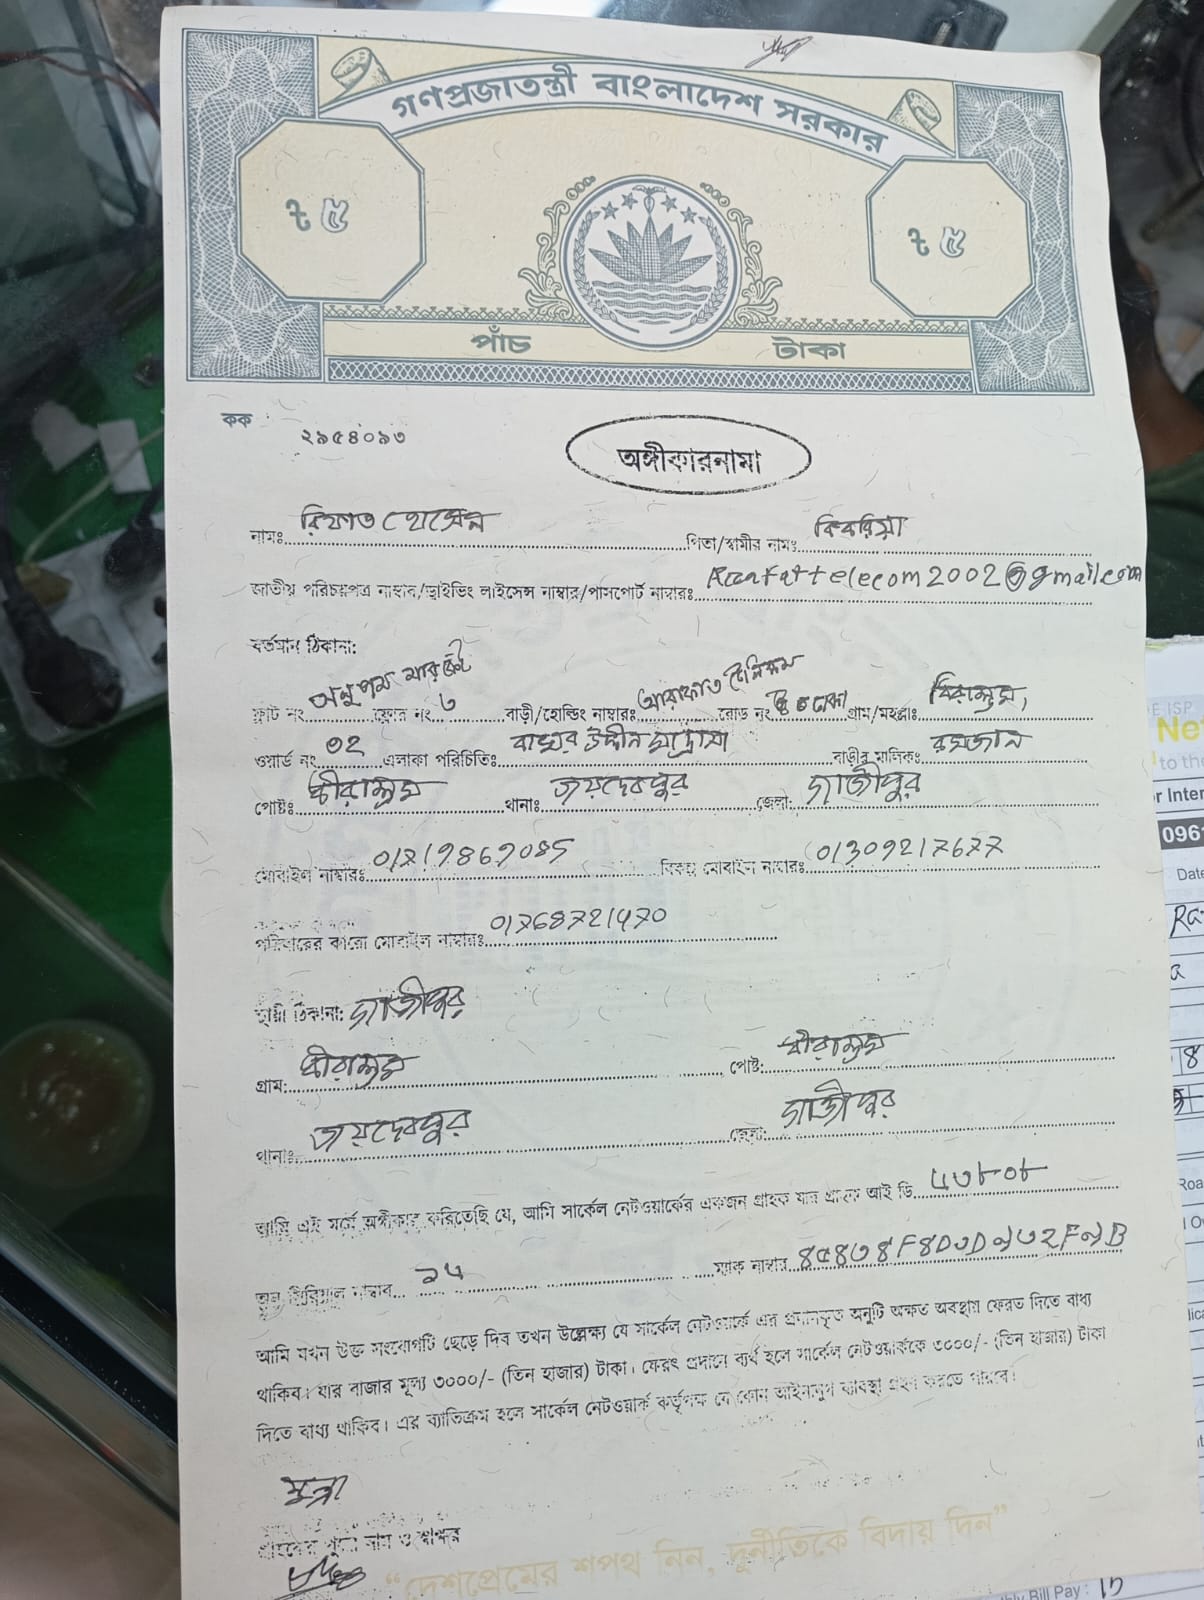 গণপ্রজাতন্ত্রী বাংলাদেশ সরকার
৳ ৫
৳ ৫
পাঁচ টাকা
কক ২৯৫৪০৯৩
অঙ্গীকারনামা
নামঃ রিফাত হোসেন পিতা/স্বামীর নামঃ কিবরিয়া
জাতীয় পরিচয়পত্র নাম্বার/ড্রাইভিং লাইসেন্স নাম্বার/পাসপোর্ট নাম্বারঃ telecom2002@gmail.com
বর্তমান ঠিকানা:
ফ্লাট নং অনুপম মার্কেট ফ্লোর নং ৩ বাড়ী/হোল্ডিং নাম্বারঃ আরাফাত টেলিকম রোড নং গ্রাম/মহল্লাঃ
ওয়ার্ড নং ০২ এলাকা পরিচিতিঃ উদ্দীন মাদ্রাসা বাড়ীর মালিকঃ রমজান
পোষ্টঃ থানাঃ জয়দেবপুর জেলা: গাজীপুর
মোবাইল নাম্বারঃ বিকল্প মোবাইল নাম্বারঃ 01309217677
পরিবারের কারো মোবাইল নাম্বারঃ
স্থায়ী ঠিকানা: গাজীপুর
গ্রাম: পোষ্ট:
থানাঃ জয়দেবপুর জেলা: গাজীপুর
আমি এই মর্মে অঙ্গীকার করিতেছি যে, আমি সার্কেল নেটওয়ার্কের একজন গ্রাহক যার গ্রাহক আই ডি
অনু সিরিয়াল নাম্বার ম্যাক নাম্বার
আমি যখন উক্ত সংযোগটি ছেড়ে দিব তখন উল্লেক্ষ্য যে সার্কেল নেটওয়ার্ক এর প্রদানকৃত অনুটি অক্ষত অবস্থায় ফেরত দিতে বাধ্য
থাকিব। যার বাজার মূল্য ৩০০০/- (তিন হাজার) টাকা। ফেরৎ প্রদানে ব্যর্থ হলে সার্কেল নেটওয়ার্ককে ৩০০০/- (তিন হাজার) টাকা
দিতে বাধ্য থাকিব। এর ব্যাতিক্রম হলে সার্কেল নেটওয়ার্ক কর্তৃপক্ষ যে কোন আইনানুগ ব্যবস্থা গ্রহণ করতে পারবে।
মুন্না
গ্রাহকের পুরো নাম ও স্বাক্ষর
“দেশপ্রেমের শপথ নিন, দুর্নীতিকে বিদায় দিন”